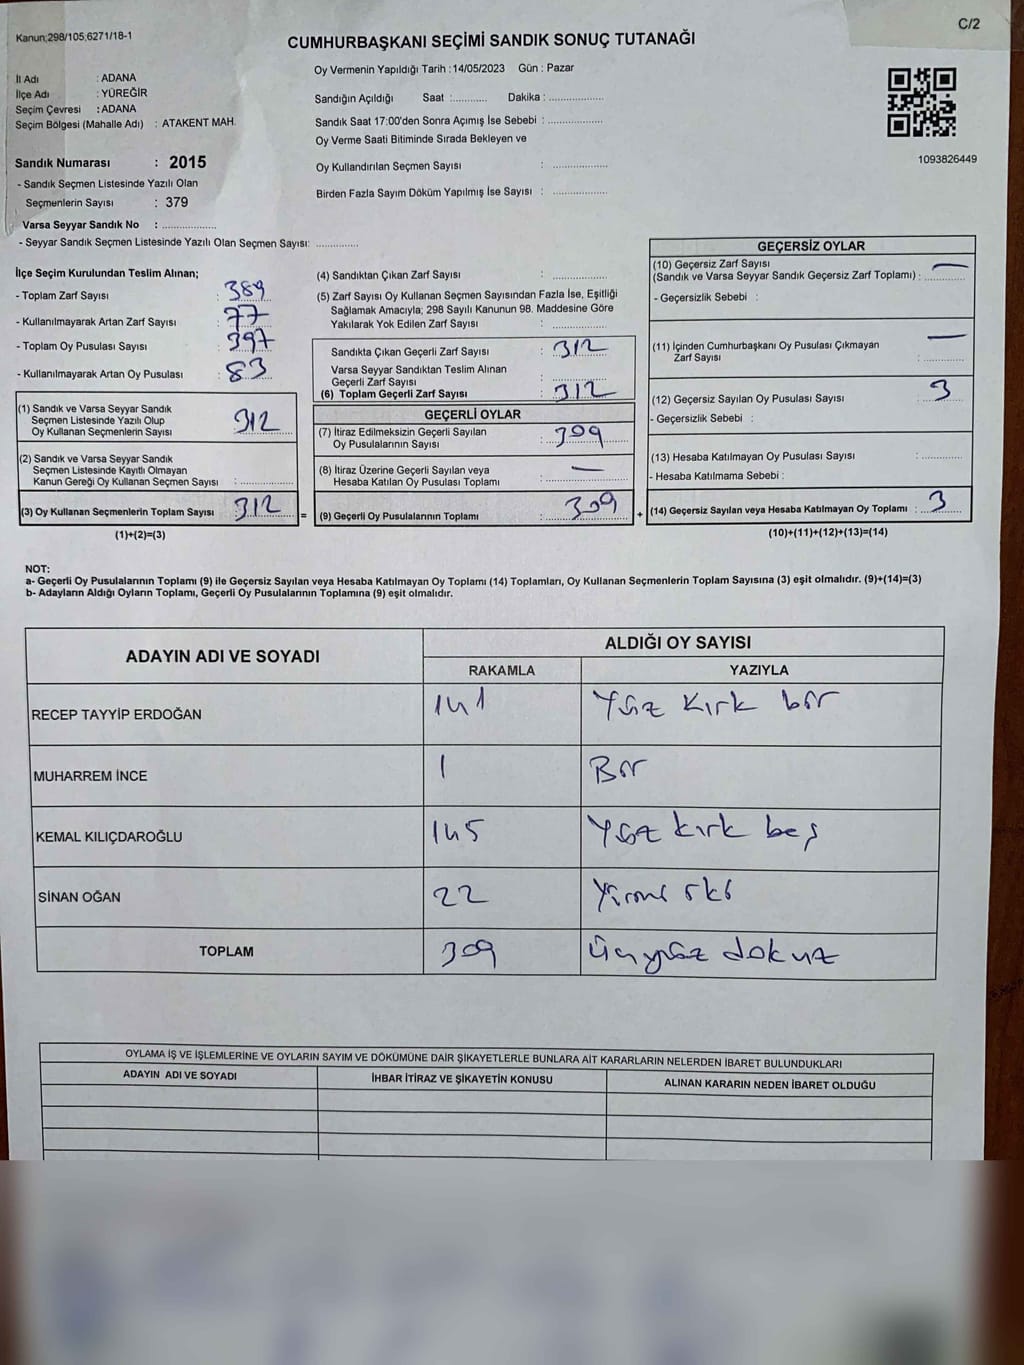 Kanun;298/105,6271/18-1
C/2
CUMHURBAŞKANI SEÇİMİ SANDIK SONUÇ TUTANAĞI
Oy Vermenin Yapıldığı Tarih :14/05/2023 Gün : Pazar
İl Adı : ADANA
İlçe Adı : YÜREĞİR
Seçim Çevresi : ADANA
Seçim Bölgesi (Mahalle Adı) : ATAKENT MAH.
Sandık Numarası : 2015
- Sandık Seçmen Listesinde Yazılı Olan
Seçmenlerin Sayısı : 379
Varsa Seyyar Sandık No : ..................
- Seyyar Sandık Seçmen Listesinde Yazılı Olan Seçmen Sayısı: ..............
Sandığın Açıldığı Saat :............ Dakika : ..................
Sandık Saat 17:00'den Sonra Açımış İse Sebebi : ..................
Oy Verme Saati Bitiminde Sırada Bekleyen ve
Oy Kullandırılan Seçmen Sayısı : ..................
Birden Fazla Sayım Döküm Yapılmış İse Sayısı : ..................
1093826449
İlçe Seçim Kurulundan Teslim Alınan;
- Toplam Zarf Sayısı : 389
- Kullanılmayarak Artan Zarf Sayısı : 77
- Toplam Oy Pusulası Sayısı : 397
- Kullanılmayarak Artan Oy Pusulası : 83
(1) Sandık ve Varsa Seyyar Sandık
Seçmen Listesinde Yazılı Olup
Oy Kullanan Seçmenlerin Sayısı 312
(2) Sandık ve Varsa Seyyar Sandık
Seçmen Listesinde Kayıtlı Olmayan
Kanun Gereği Oy Kullanan Seçmen Sayısı : ..................
(3) Oy Kullanan Seçmenlerin Toplam Sayısı 312 =
(1)+(2)=(3)
(4) Sandıktan Çıkan Zarf Sayısı : ..................
(5) Zarf Sayısı Oy Kullanan Seçmen Sayısından Fazla İse, Eşitliği
Sağlamak Amacıyla; 298 Sayılı Kanunun 98. Maddesine Göre
Yakılarak Yok Edilen Zarf Sayısı : ..................
Sandıkta Çıkan Geçerli Zarf Sayısı : 312
Varsa Seyyar Sandıktan Teslim Alınan
Geçerli Zarf Sayısı : ..................
(6) Toplam Geçerli Zarf Sayısı : 312
GEÇERLİ OYLAR
(7) İtiraz Edilmeksizin Geçerli Sayılan
Oy Pusulalarının Sayısı : 309
(8) İtiraz Üzerine Geçerli Sayılan veya
Hesaba Katılan Oy Pusulası Toplamı : —
(9) Geçerli Oy Pusulalarının Toplamı : 309 +
GEÇERSİZ OYLAR
(10) Geçersiz Zarf Sayısı
(Sandık ve Varsa Seyyar Sandık Geçersiz Zarf Toplamı) : —
- Geçersizlik Sebebi :
(11) İçinden Cumhurbaşkanı Oy Pusulası Çıkmayan
Zarf Sayısı : —
(12) Geçersiz Sayılan Oy Pusulası Sayısı : 3
- Geçersizlik Sebebi :
(13) Hesaba Katılmayan Oy Pusulası Sayısı : ............
- Hesaba Katılmama Sebebi :
(14) Geçersiz Sayılan veya Hesaba Katılmayan Oy Toplamı : 3
(10)+(11)+(12)+(13)=(14)
NOT:
a- Geçerli Oy Pusulalarının Toplamı (9) ile Geçersiz Sayılan veya Hesaba Katılmayan Oy Toplamı (14) Toplamları, Oy Kullanan Seçmenlerin Toplam Sayısına (3) eşit olmalıdır. (9)+(14)=(3)
b- Adayların Aldığı Oyların Toplamı, Geçerli Oy Pusulalarının Toplamına (9) eşit olmalıdır.
ADAYIN ADI VE SOYADI ALDIĞI OY SAYISI
RAKAMLA YAZIYLA
RECEP TAYYİP ERDOĞAN 141 Yüz kırk bir
MUHARREM İNCE 1 Bir
KEMAL KILIÇDAROĞLU 145 Yüz kırk beş
SİNAN OĞAN 22 Yirmi iki
TOPLAM 309 Üçyüz dokuz
OYLAMA İŞ VE İŞLEMLERİNE VE OYLARIN SAYIM VE DÖKÜMÜNE DAİR ŞİKAYETLERLE BUNLARA AİT KARARLARIN NELERDEN İBARET BULUNDUKLARI
ADAYIN ADI VE SOYADI İHBAR İTİRAZ VE ŞİKAYETİN KONUSU ALINAN KARARIN NEDEN İBARET OLDUĞU